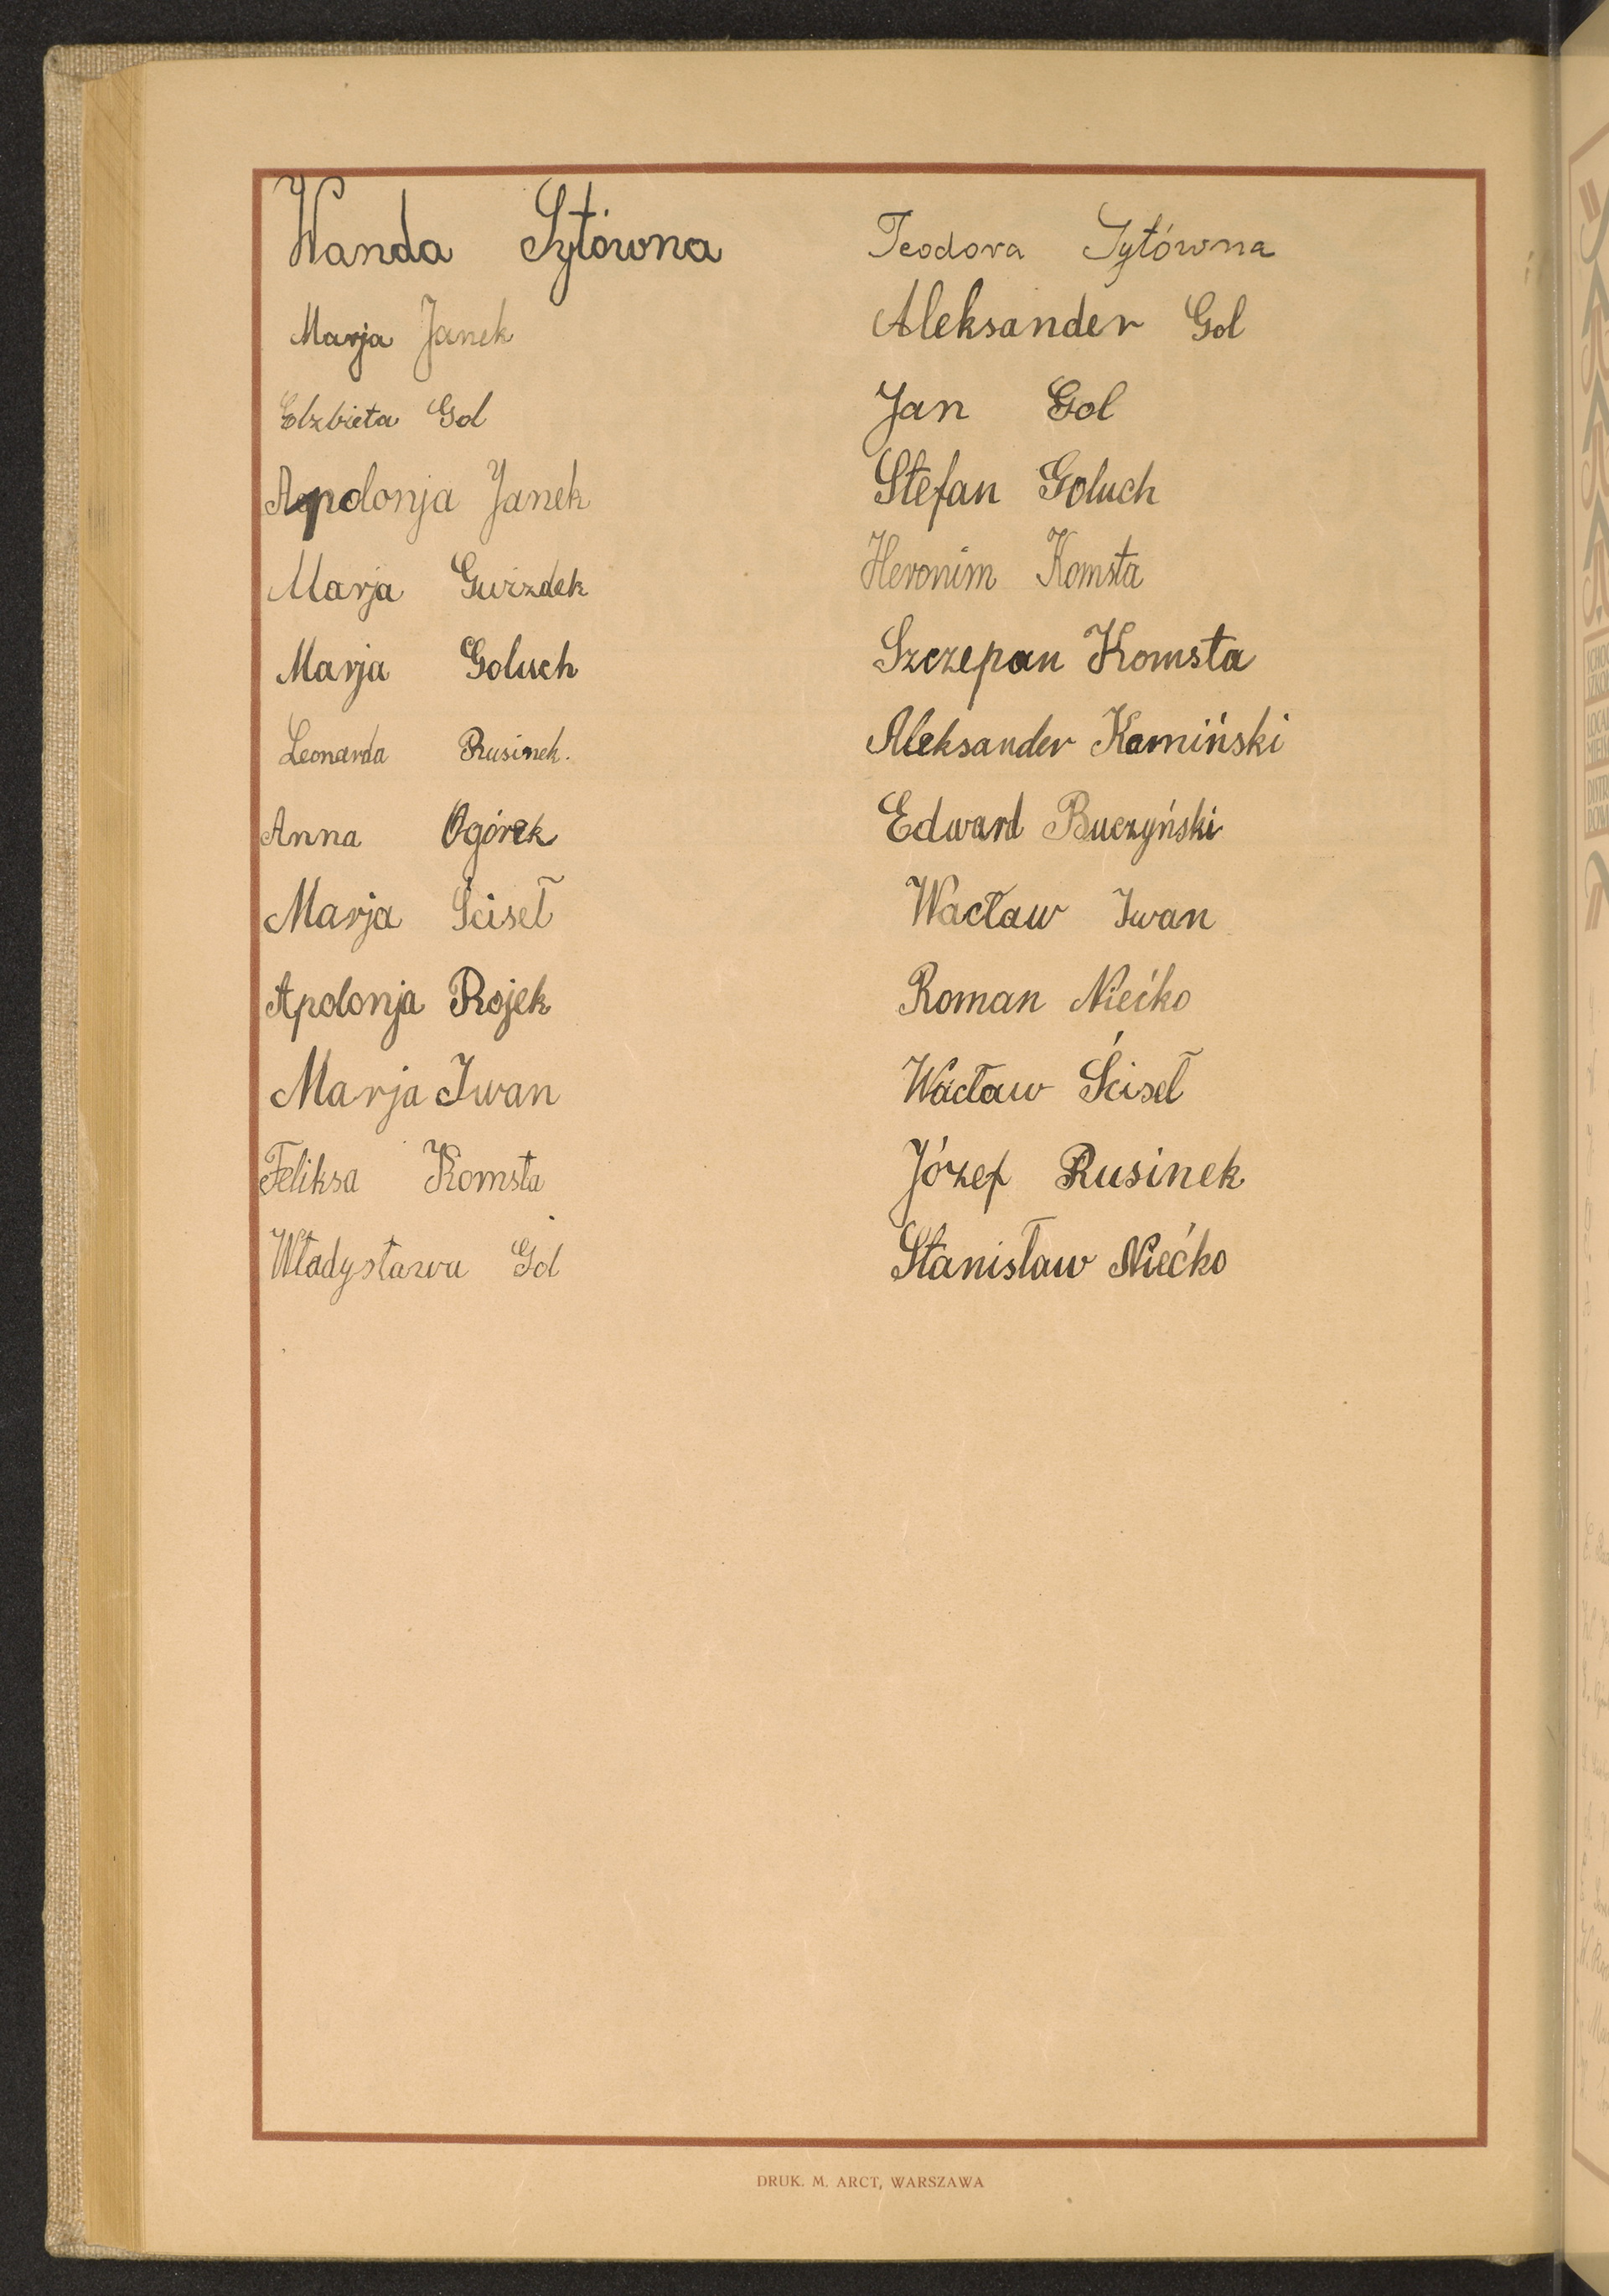 Wanda Sytówna
Marja Janek
Elzbieta Gol
Apolonja Janek
Marja Gwizdek
Marja Goluch
Leonarda Rusinek.
Anna Ogórek
Marja Ściseł
Apolonja Rojek
Marja Iwan
Feliksa Komsta
Władysława Gol
Teodora Sytówna
Aleksander Gol
Jan Gol
Stefan Goluch
Heronim Komsta
Szczepan Komsta
Aleksander Kamiński
Edward Buczyński
Wacław Iwan
Roman Niećko
Wacław Ściseł
Józef Rusinek
Stanisław Niećko
DRUK. M. ARCT, WARSZAWA